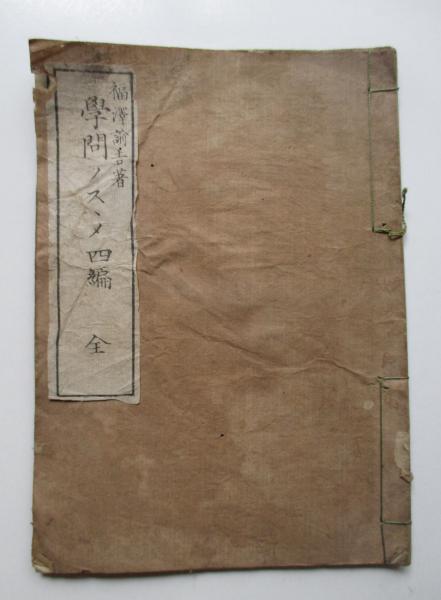 福澤諭吉著
學問ノスヽメ四編　全